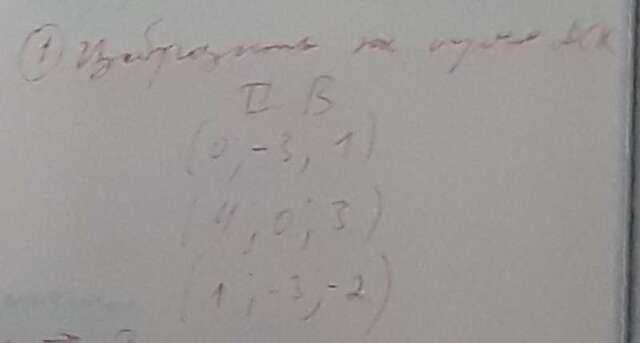 ① Изобразить на
II В
(0; -3; 1)
(4; 0; 3)
(1; -3; -2)